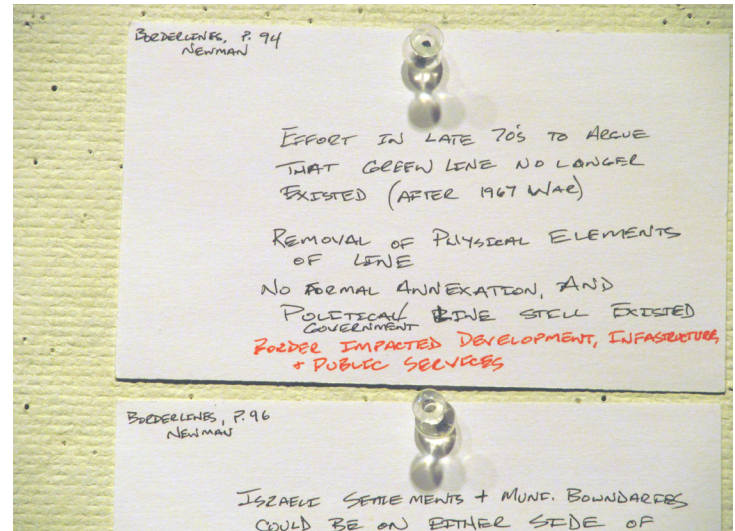 BORDERLINES, P. 94
NEWMAN
EFFORT IN LATE 70'S TO ARGUE
THAT GREEN LINE NO LONGER
EXISTED (AFTER 1967 WAR)
REMOVAL OF PHYSICAL ELEMENTS
OF LINE
NO FORMAL ANNEXATION, AND
POLITICAL/ LINE STILL EXISTED
GOVERNMENT
BORDER IMPACTED DEVELOPMENT, INFASTRUCTURE
+ PUBLIC SERVICES
BORDERLINES, P. 96
NEWMAN
ISRAELI SETTLEMENTS + MUNI. BOWNDARIES
COULD BE ON EITHER SIDE OF